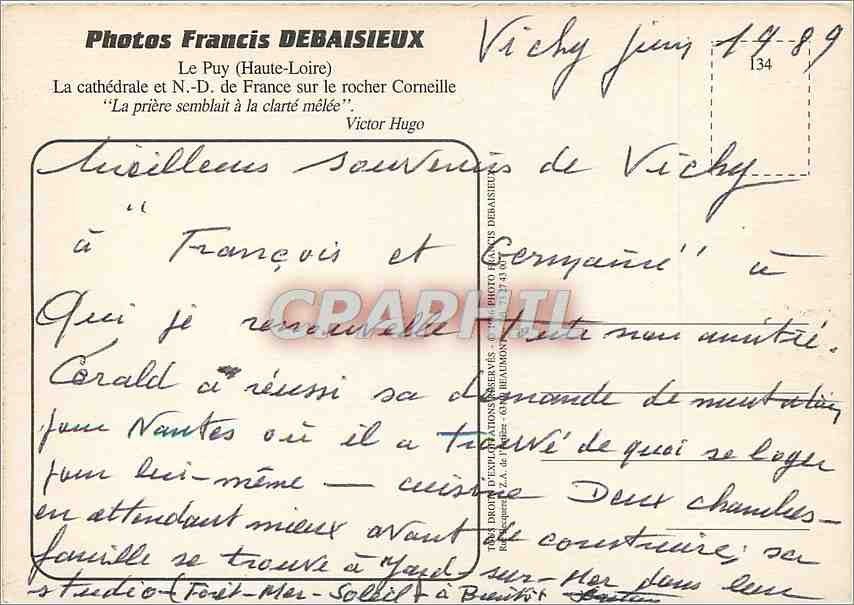 Photos Francis DEBAISIEUX
Le Puy (Haute-Loire)
La cathédrale et N.-D. de France sur le rocher Corneille
"La prière semblait à la clarté mêlée".
Victor Hugo
134
Vichy juin 1989
Meilleurs souvenirs de Vichy
à "François et Germaine" à
Qui je renouvelle toute mon amitié.
Gérald a réussi sa demande de mutation
pour Nantes où il a trouvé de quoi se loger
pour lui-même — cuisine Deux chambres —
en attendant mieux avant de construire; sa
famille se trouve à Jard-sur-Mer dans leur
studio - (Forêt-Mer-Soleil) à Bientôt
TOUS DROITS D'EXPLOITATION RÉSERVÉS - © PHOTO FRANCIS DEBAISIEUX
Z.A. de 63 BEAUMONT
CPAPHIL